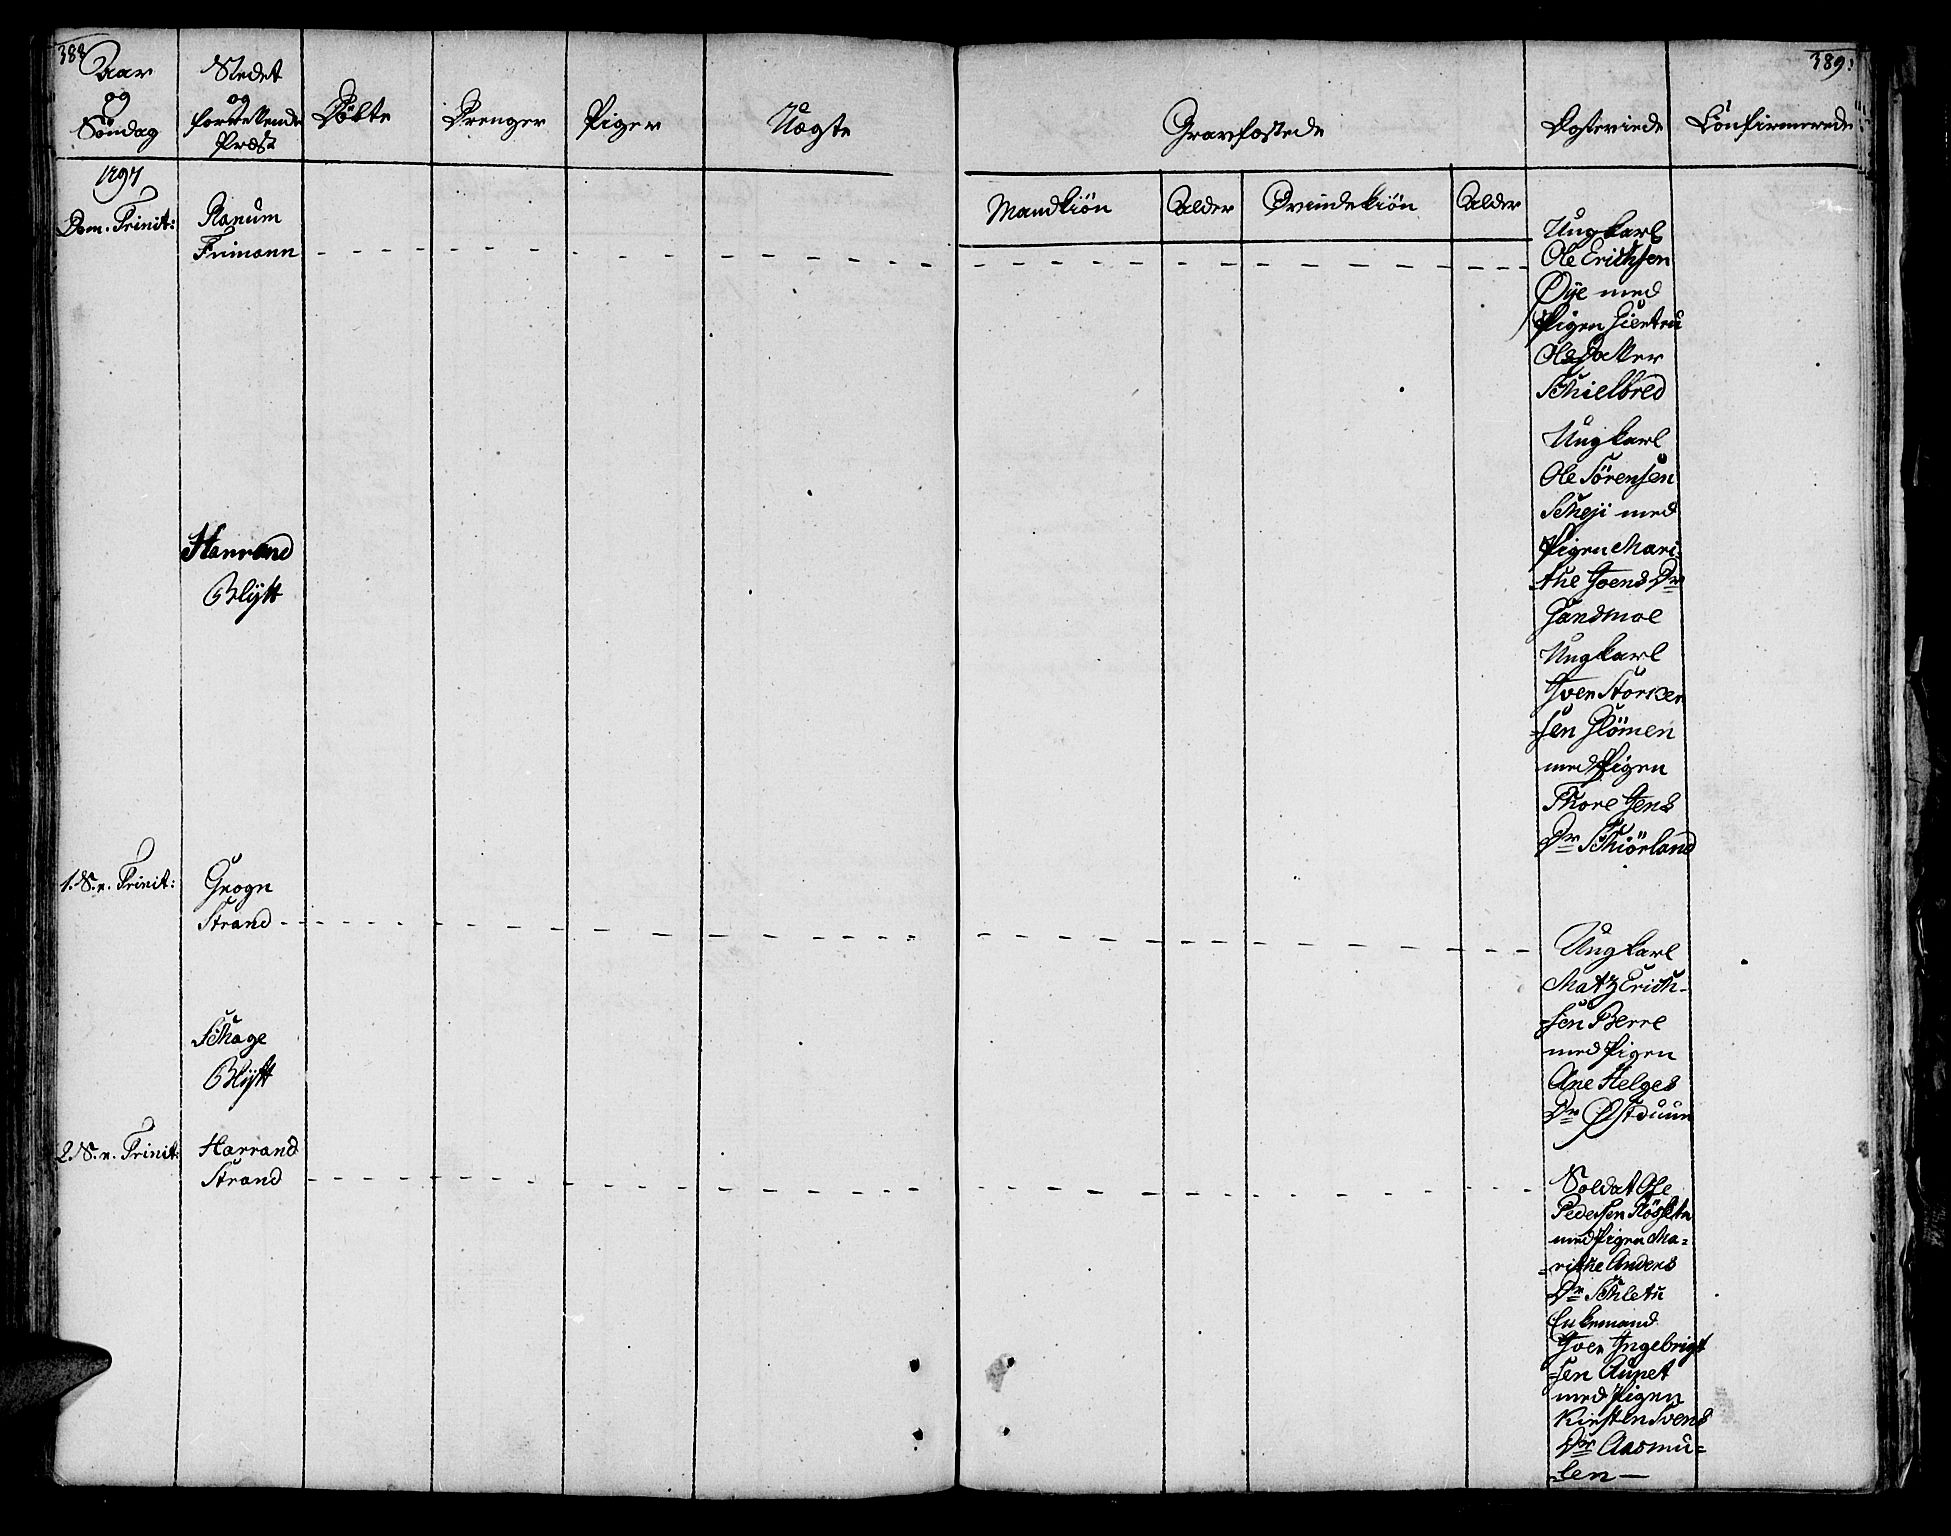 388
389:
Aar
og
Søndag
Stedet
og
forrettende
Præst
Døbte
Drenger
Piger
Uægte
Gravfæstede
Egteviede
Confirmerede
Mandkiön
Alder
Qvindekiön
Alder
1797
Dom. Trinit:
Ranum
Frimann
Ungkarl
Ole Erichsen
Øye med
Pigen Giertru
Olsdatter
Schielbred
Harrand
Blÿtt
Ungkarl
Ole Sørensen
Scheji med
Pigen Mari
the Ivens Dr
Sandmoe
Ungkarl
Iver Storker
=sen Glömen
med Pigen
Thore Jens
Dr Schiörland
1. S. e. Trinit:
Grogn
Strand
Ungkarl
Matz Erich-
=sen Berre
med Pigen
Ane Helges
Dr Østduun
Schage
Blÿtt
2. S. e. Trinit:
Harrand
Strand
Soldat Ole
Pedersen
med Pigen Ma=
=rithe Anders
Dr Schletu
Enkemand
Iver Ingebrigt
=sen Aunet
med Pigen
Kirsten Svens
Dr Aasmu=
=len